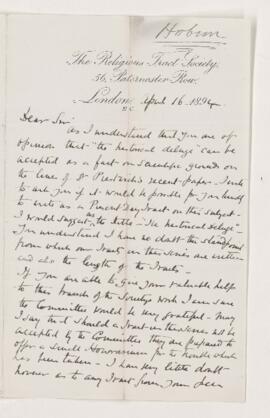 Hobson
The Religious Tract Society,
56, Paternoster Row,
London, April 16. 1894
E.C.
Dear Sir
as I understand that you are of
opinion that "the historical deluge" can be
accepted as a fact on scientific grounds on
the lines of Dr Prestwich's recent paper - I write
to ask you if it would be possible for you kindly
to write us a Present Day Tract on this subject -
I would suggest as the title - "The historical deluge" -
You understand I have no doubt the standpoint
from which our Tracts in this series are written
and also the length of the Tracts -
If you are able to give your valuable help
to this branch of the Society's work I am sure
the Committee would be very grateful. May
I say that should a Tract in this series not be
accepted by the Committee they are prepared to
offer a small Honorarium for the trouble which
has been taken - I have very little doubt
however as to any Tract from your pen